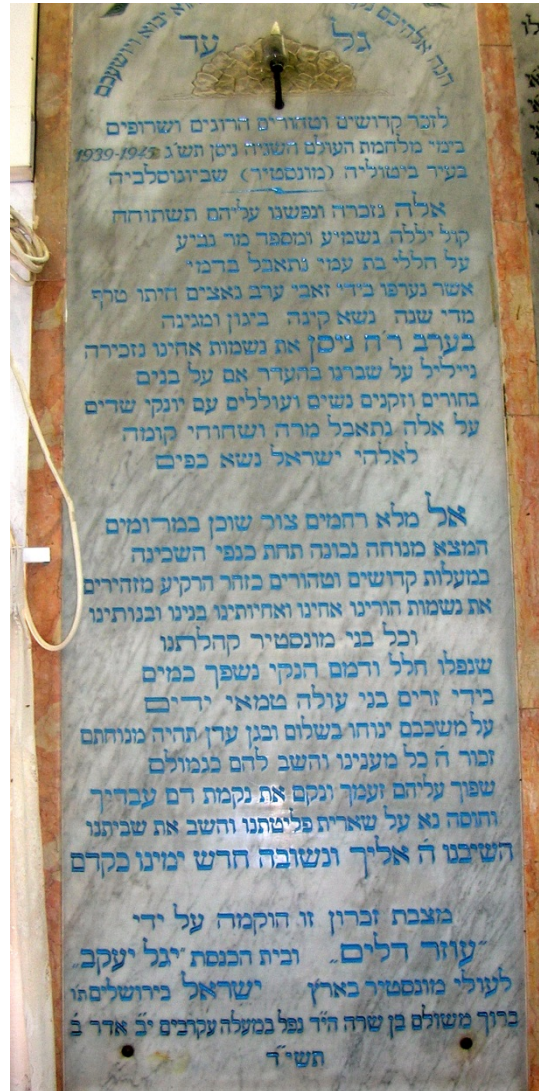 הנה אלהיכם נקם הוא יבוא ויושעכם
גל עד
לזכר קדושים וטהורים הרוגים ושרופים
בימי מלחמת העולם השניה ניסן תש״ג 1939-1945
בעיר ביטוליה (מונסטיר) שביוגוסלביה
אלה נזכרה ונפשנו עליהם תשתוחח
קול יללה נשמיע ומספד מר נביע
על חללי בת עמי נתאבל בדמי
אשר נערפו בידי זאבי ערב נאצים חיתו טרף
מדי שנה נשא קינה ביגון ומגינה
בערב ר״ח ניסן את נשמות אחינו נזכירה
נייליל על שברנו בהעדר אם על בנים
בחורים וזקנים נשים ועוללים עם יונקי שדים
על אלה נתאבל מרה ושחוחי קומה
לאלהי ישראל נשא כפים
אל מלא רחמים צור שוכן במרומים
המצא מנוחה נכונה תחת כנפי השכינה
במעלות קדושים וטהורים כזהר הרקיע מזהירים
את נשמות הורינו אחינו ואחיותינו בנינו ובנותינו
וכל בני מונסטיר קהלתנו
שנפלו חלל ודמם הנקי נשפך כמים
בידי זרים בני עולה טמאי ידים
על משכבם ינוחו בשלום ובגן עדן תהיה מנוחתם
זכור ה׳ כל מענינו והשב להם כגמולם
שפוך עליהם זעמך ונקם את נקמת דם עבדיך
וחוסה נא על שארית פליטתנו והשב את שביתנו
השיבנו ה׳ אליך ונשובה חדש ימינו כקדם
מצבת זכרון זו הוקמה על ידי
״עוזר דלים״ ובית הכנסת ״יגל יעקב״
לעולי מונסטיר בארץ ישראל בירושלים תו
ברוך משולם בן שרה הי״ד נפל במעלה עקרבים י״ב אדר ב׳
תשי״ד